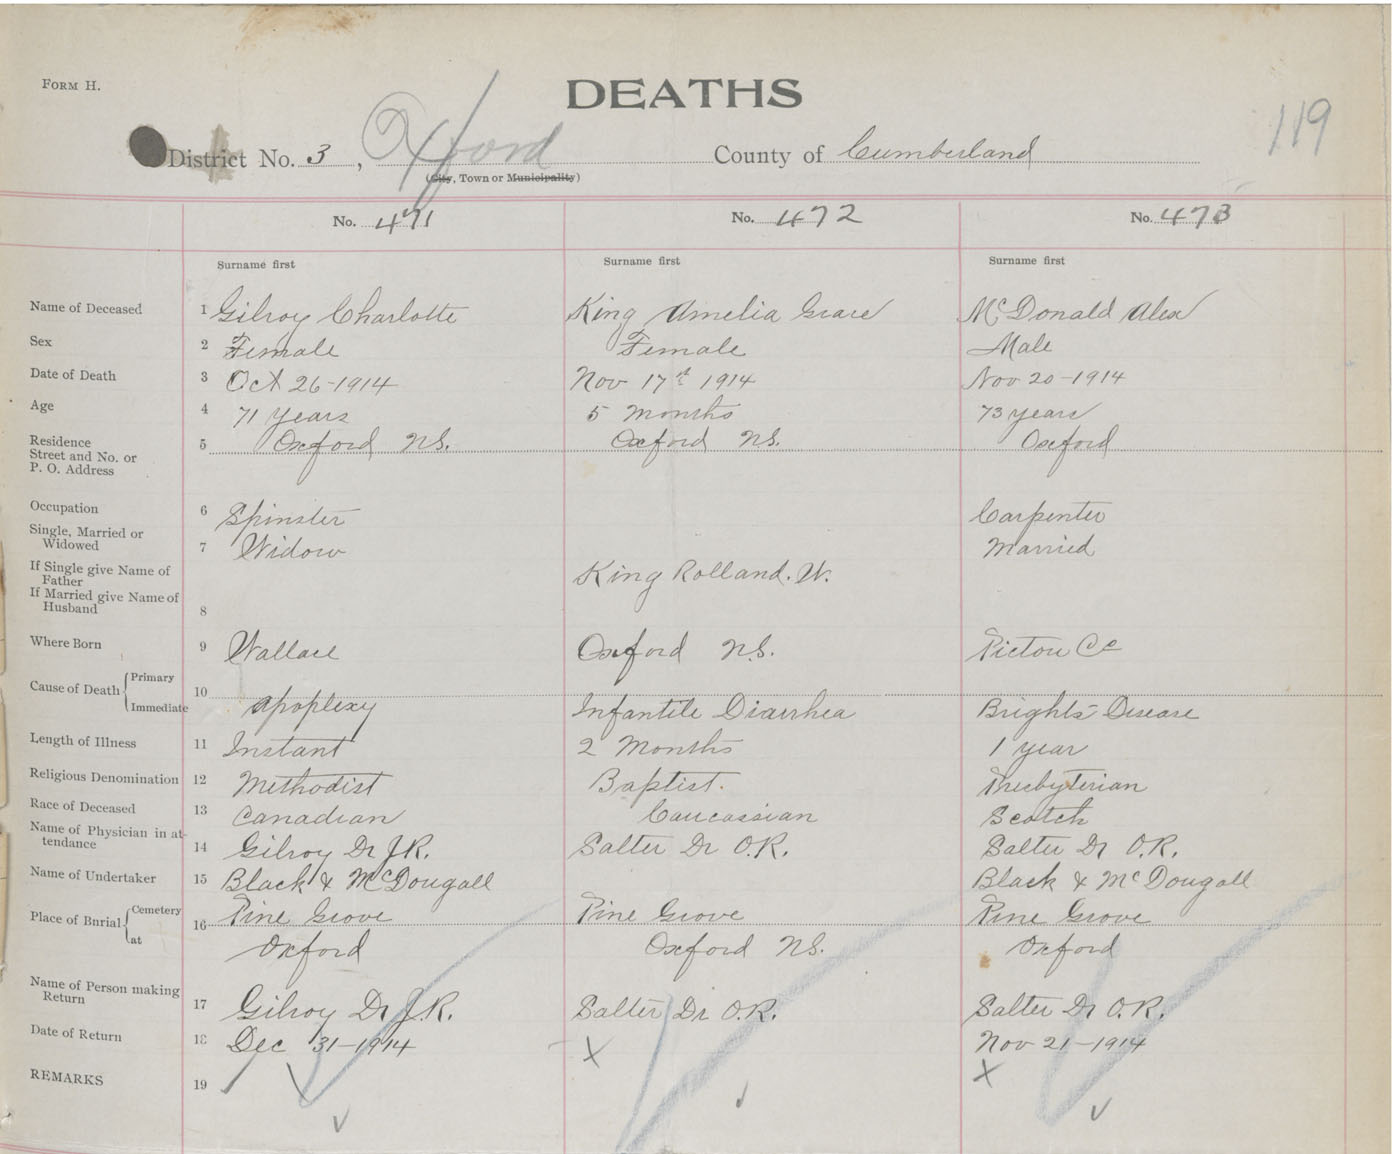 FORM H.
DEATHS
119
District No. 3, Oxford County of Cumberland
(City, Town or Municipality)
No. 471 No. 472 No. 473
Surname first Surname first Surname first
Name of Deceased 1 Gilroy Charlotte King Amelia Grace McDonald Alex
Sex 2 Female Female Male
Date of Death 3 Oct 26-1914 Nov 17th 1914 Nov 20-1914
Age 4 71 Years 5 Months 73 years
Residence 5 Oxford N.S. Oxford N.S. Oxford
Street and No. or
P. O. Address
Occupation 6 Spinster Carpenter
Single, Married or
Widowed 7 Widow Married
If Single give Name of
Father King Rolland. W.
If Married give Name of
Husband 8
Where Born 9 Wallace Oxford N.S. Pictou Co
Cause of Death { Primary 10
Immediate Apoplexy Infantile Diarrhea Brights Disease
Length of Illness 11 Instant 2 Months 1 year
Religious Denomination 12 Methodist Baptist. Presbyterian
Race of Deceased 13 Canadian Caucassian Scotch
Name of Physician in at-
tendance 14 Gilroy Dr J.R. Salter Dr O.R. Salter Dr O.R.
Name of Undertaker 15 Black & McDougall Black & McDougall
Place of Burial { Cemetery 16 Pine Grove Pine Grove Pine Grove
at Oxford Oxford N.S. Oxford
Name of Person making
Return 17 Gilroy Dr J.R. Salter Dr O.R. Salter Dr O.R.
Date of Return 18 Dec 31-1914 X Nov 21-1914
REMARKS 19 X